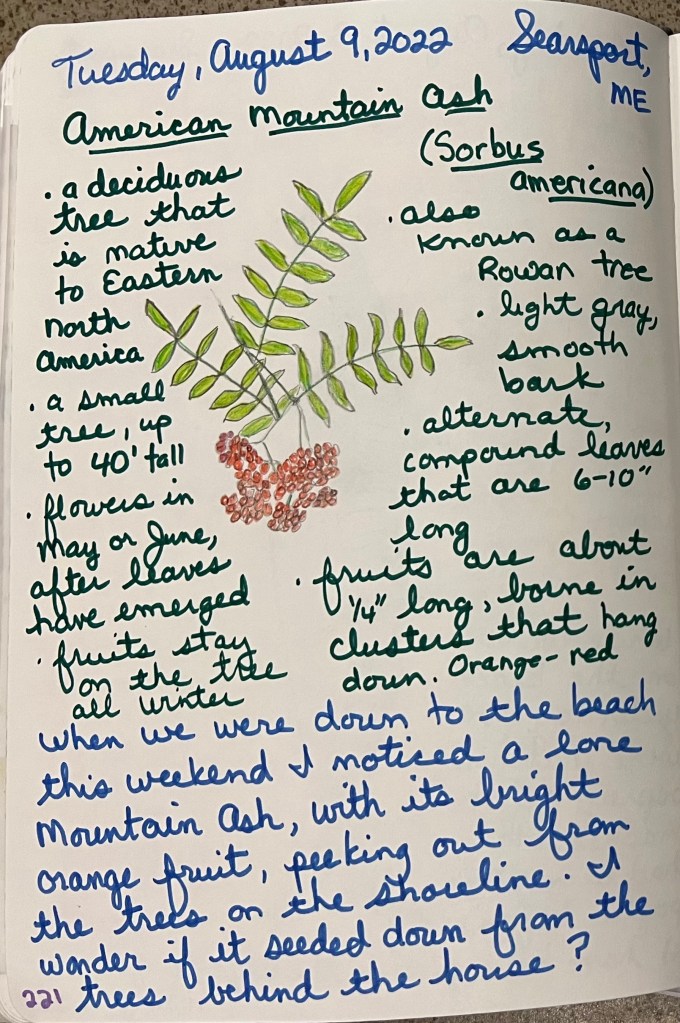 Tuesday, August 9, 2022 Searsport, ME
American Mountain Ash
(Sorbus americana)
• a deciduous
tree that
is native
to Eastern
North
America
• a small
tree, up
to 40' tall
• flowers in
May or June,
after leaves
have emerged
• fruits stay
on the tree
all winter
• also
known as a
Rowan tree
• light gray,
smooth
bark
• alternate,
compound leaves
that are 6-10"
long
• fruits are about
1/4" long, borne in
clusters that hang
down. Orange-red
When we were down to the beach
this weekend I noticed a lone
Mountain Ash, with its bright
orange fruit, peeking out from
the trees on the shoreline. I
wonder if it seeded down from the
trees behind the house?
221